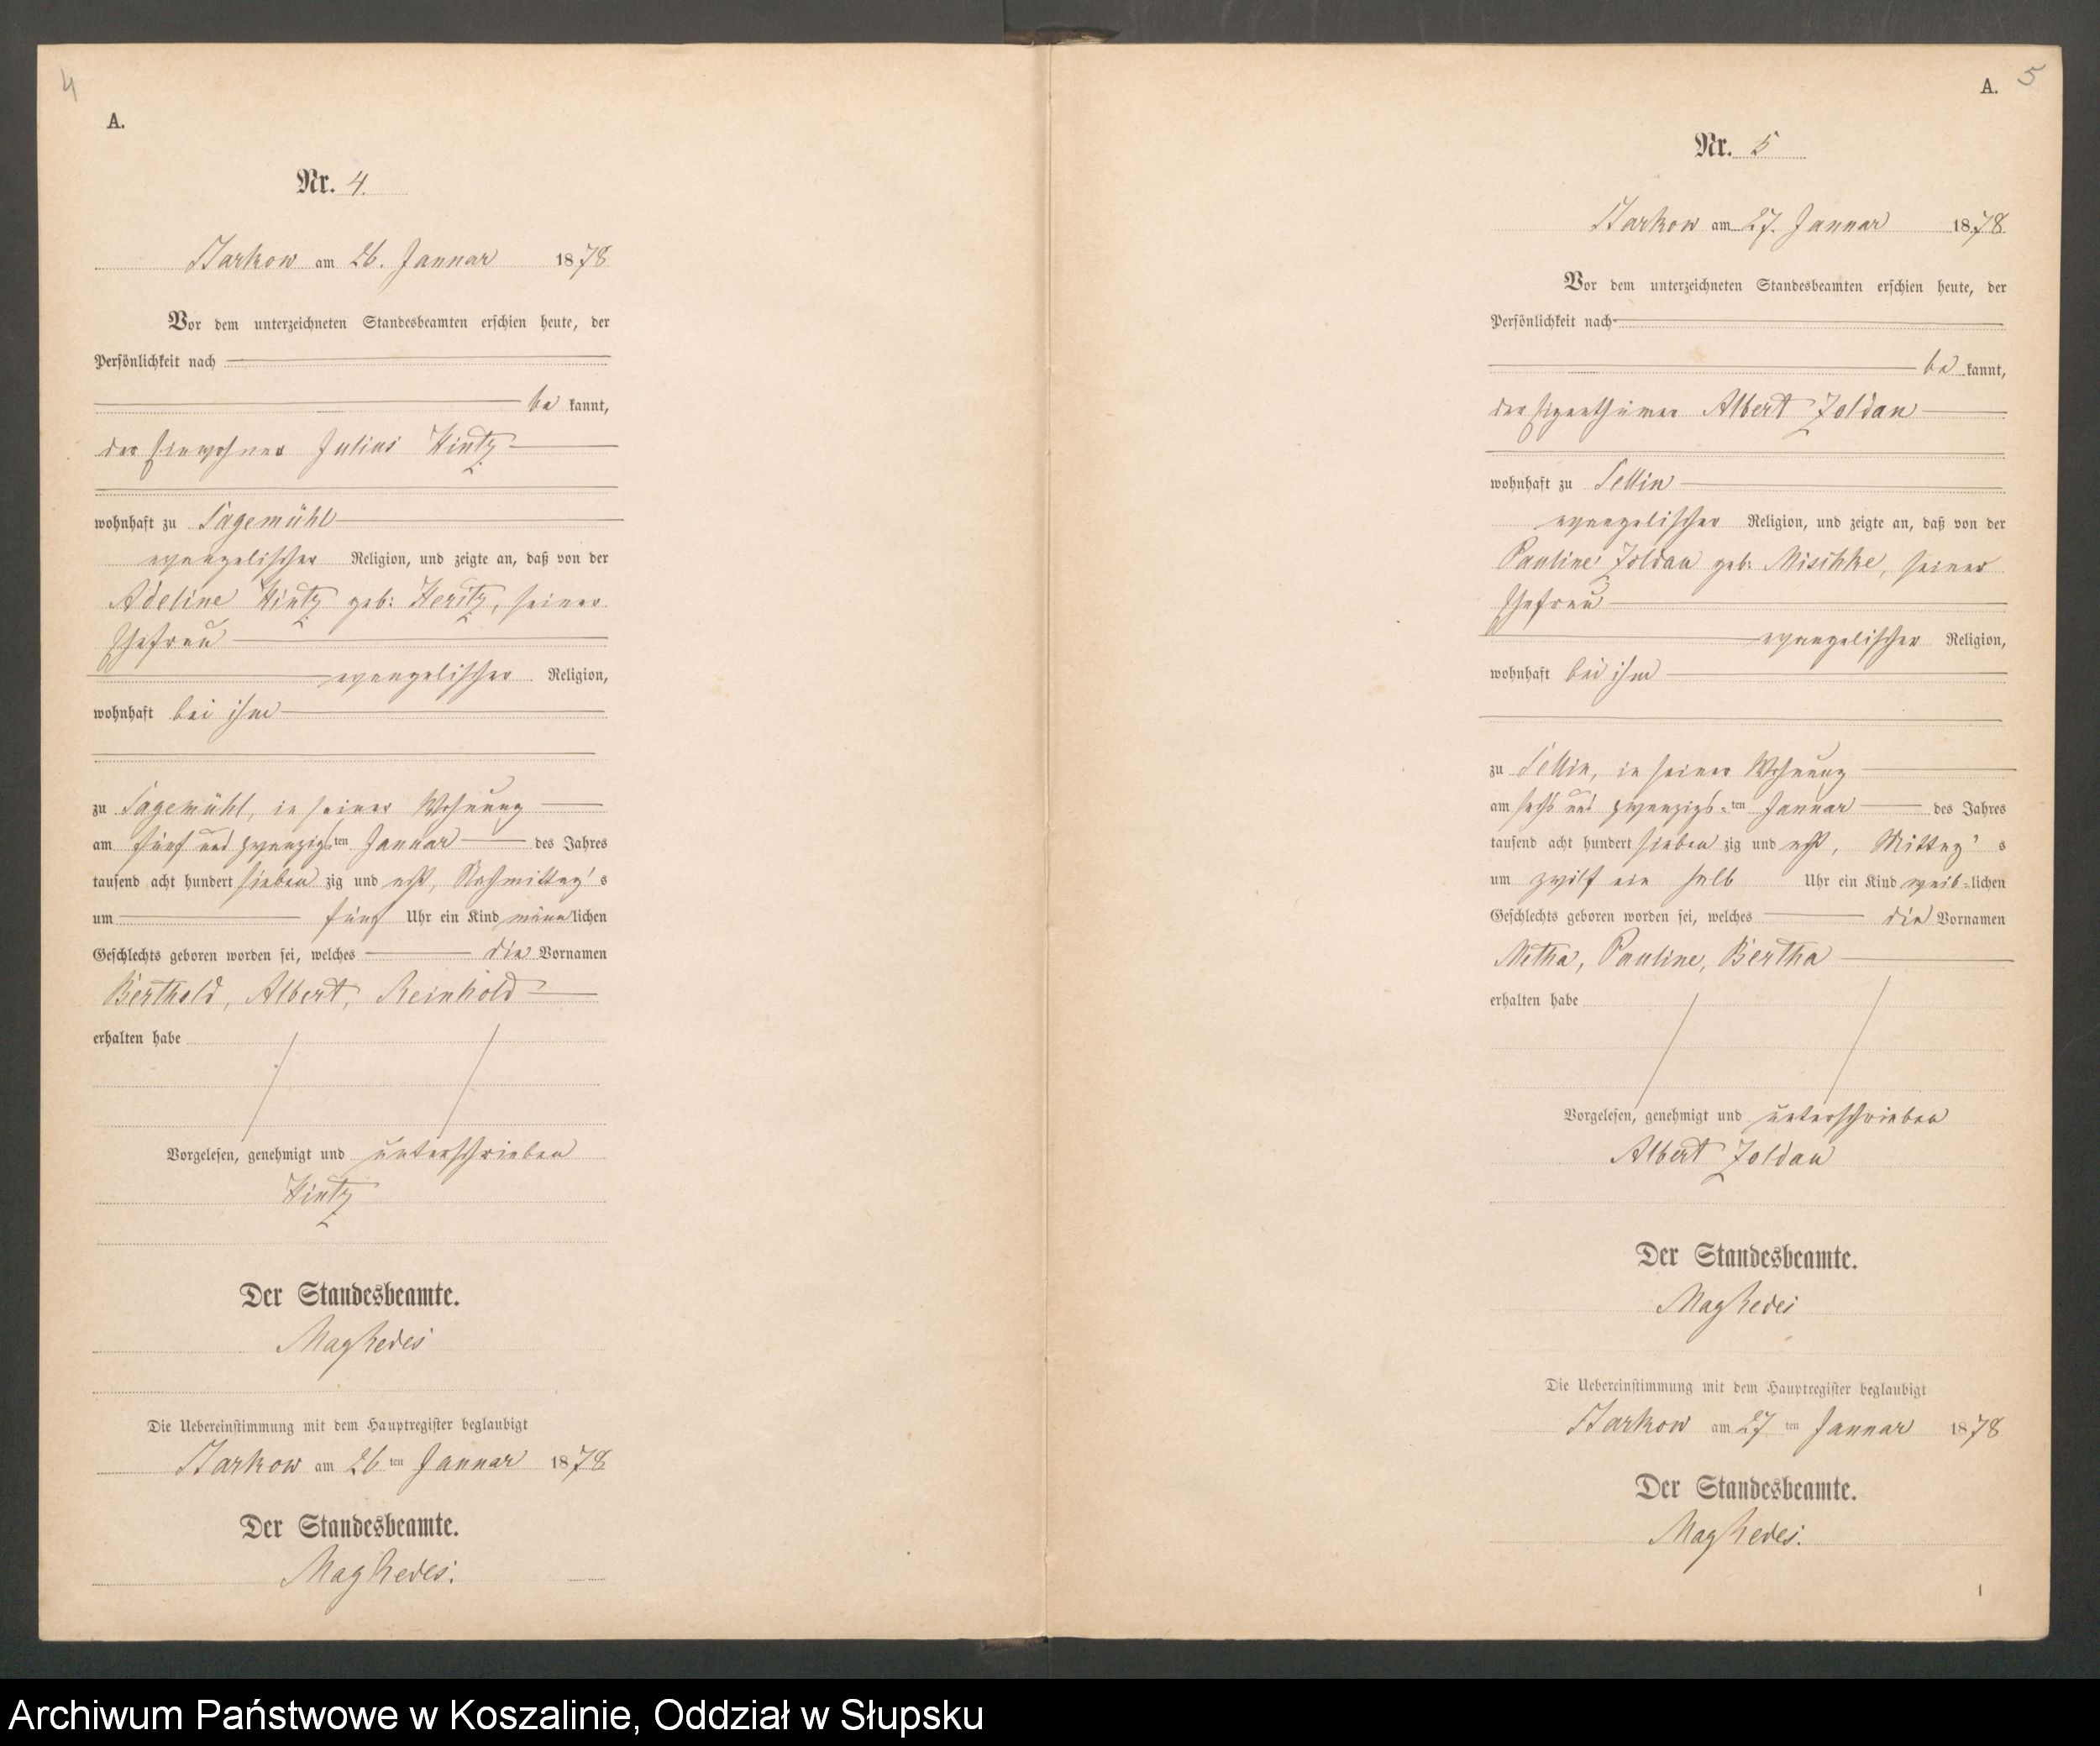 4
A.
Nr. 4.
Starkow am 26. Januar 1878
Vor dem unterzeichneten Standesbeamten erschien heute, der
Persönlichkeit nach
be kannt,
der Einwohner Julius Hintz
wohnhaft zu Sagemühl
evangelischer Religion, und zeigte an, daß von der
Adeline Hintz geb: Heritz, seiner
Ehefrau
evangelischer Religion,
wohnhaft bei ihm
zu Sagemühl, in seiner Wohnung
am fünf und zwanzigsten Januar des Jahres
tausend acht hundert sieben zig und acht, Nachmittag's
um fünf Uhr ein Kind männlichen
Geschlechts geboren worden sei, welches die Vornamen
Berthold, Albert, Reinhold
erhalten habe
Vorgelesen, genehmigt und unterschrieben
Hintz
Der Standesbeamte.
Die Uebereinstimmung mit dem Hauptregister beglaubigt
Starkow am 26ten Januar 1878
Der Standesbeamte.
5
A.
Nr. 5
Starkow am 27. Januar 1878
Vor dem unterzeichneten Standesbeamten erschien heute, der
Persönlichkeit nach
be kannt,
der Eigenthümer Albert Zoldan
wohnhaft zu Sellin
evangelischer Religion, und zeigte an, daß von der
Pauline Zoldan geb: Mischke, seiner
Ehefrau
evangelischer Religion,
wohnhaft bei ihm
zu Sellin, in seiner Wohnung
am sechs und zwanzigs=ten Januar des Jahres
tausend acht hundert sieben zig und acht, Mittag's
um zwölf ein halb Uhr ein Kind weib=lichen
Geschlechts geboren worden sei, welches die Vornamen
Metha, Pauline, Bertha
erhalten habe
Vorgelesen, genehmigt und unterschrieben
Albert Zoldan
Der Standesbeamte.
Die Uebereinstimmung mit dem Hauptregister beglaubigt
Starkow am 27ten Januar 1878
Der Standesbeamte.
1
Archiwum Państwowe w Koszalinie, Oddział w Słupsku